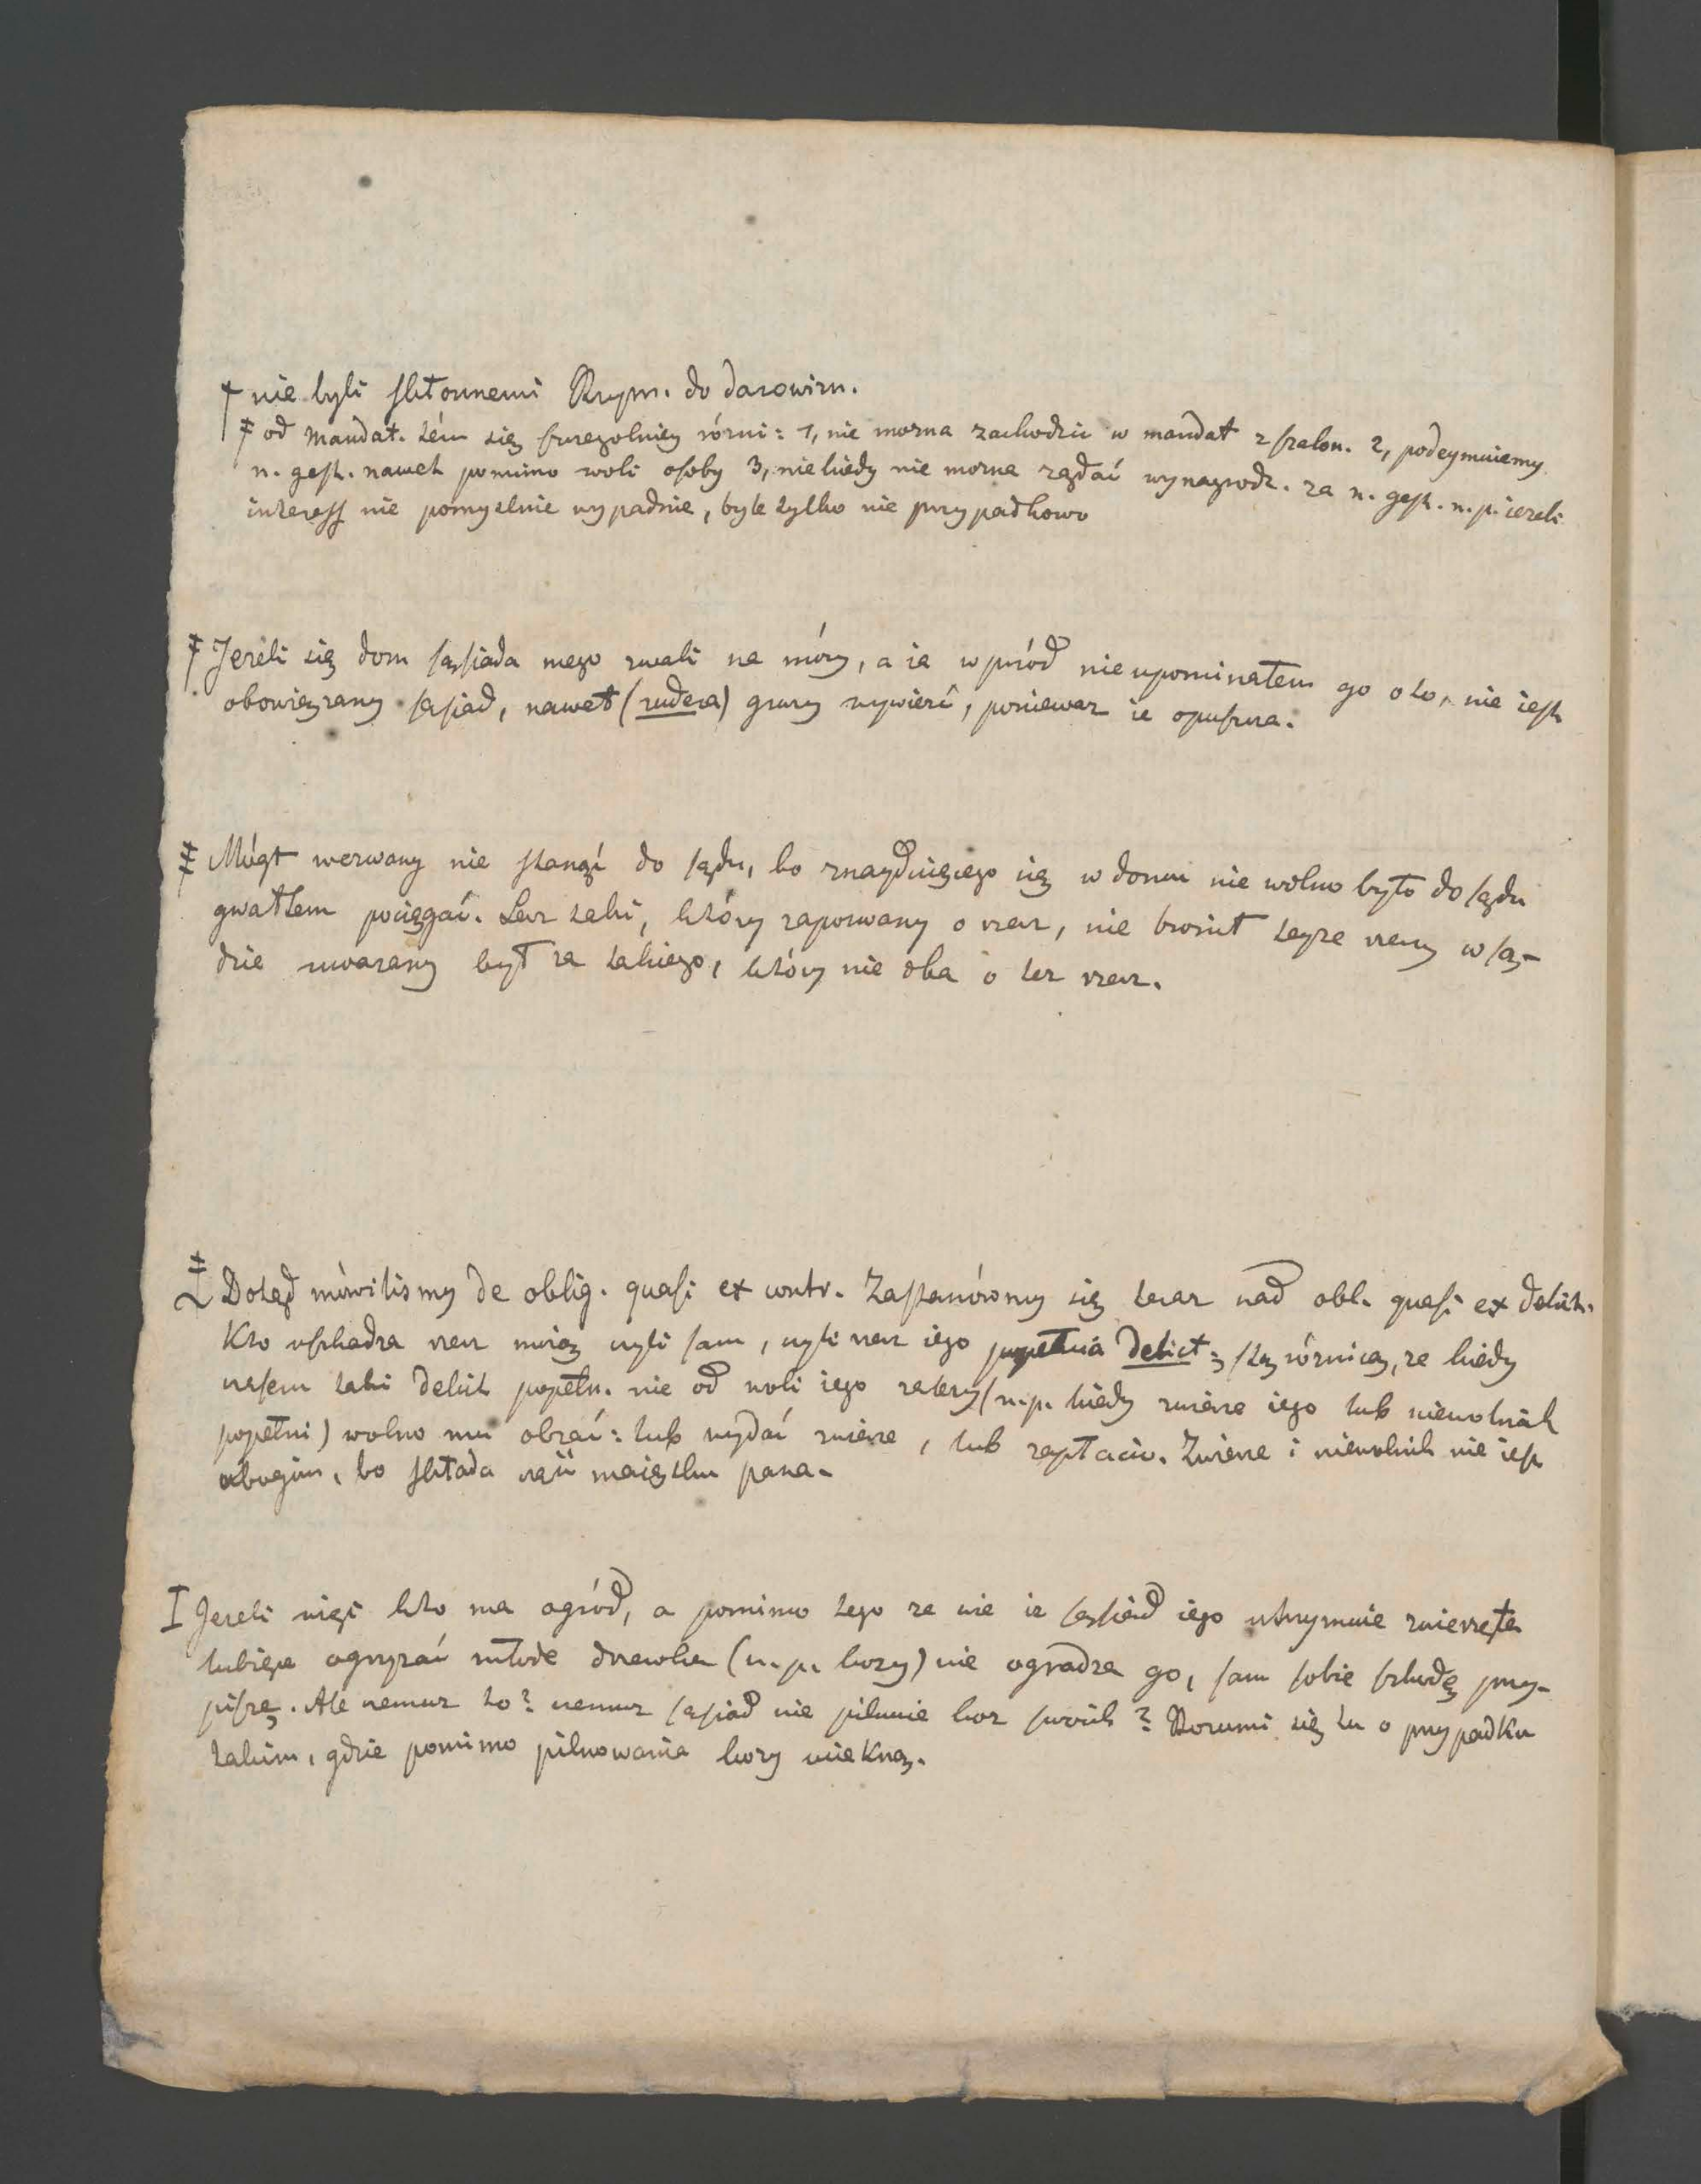 † nie byli skłonnemi Rzym. do darowizn.
‡ od mandat. tém się szczegolniey rózni: 1, nie mozna zachodzić w mandat z szalon. 2, podeymuiemy
n. gest. nawet pomimo woli osoby 3, niekiedy nie mozna ządać wynagrodz. za n. gest. n. p. iezeli
interess nie pomyslnie wypadnie, byle tylko nie przypadkowo
‡ Jezeli się dom sąsiada mego zwali na móy, a ia wprzód nie upominałem go o to, nie iest
obowiązany sąsiad, nawet (rudera) gruzy wywieźć, poniewaz ie opuszcza.
‡ Mógł wezwany nie stanąć do sądu, bo znayduiącego się w domu nie wolno było do sądu
gwałtem pociągać. Lecz taki, który zapozwany o rzecz, nie bronił teyze rzeczy w są-
dzie uwazany był za takiego, który nie dba o tez rzecz.
‡ Dotąd mówilismy de oblig. quasi ex contr. Zastanówmy się teraz nad obl. quasi ex delict.
Kto uszkadza rzecz moią czyli sam, czyli rzecz iego popełnia delict: z tą róznicą, ze kiedy
czasem taki delict popełn. nie od woli iego zalezy (n. p. kiedy zwierze iego lub niewolnik
popełni) wolno mu obrać: lub wydać zwierze, lub zapłacić. Zwierze i niewolnik nie iest
ubogim, bo składa część maiątku pana.
I Jezeli więc kto ma ogród, a pomimo tego ze wie ze sąsiad iego utrzymuie zwierzęta
lubiące ogryzać młode drzewka (n. p. kozy) nie ogradza go, sam sobie szkodę przy-
pisze. Ale czemuz to? czemuz sąsiad nie pilnuie koz swoich? Rozumi się tu o przypadku
takim, gdzie pomimo pilnowania kozy uciekną.